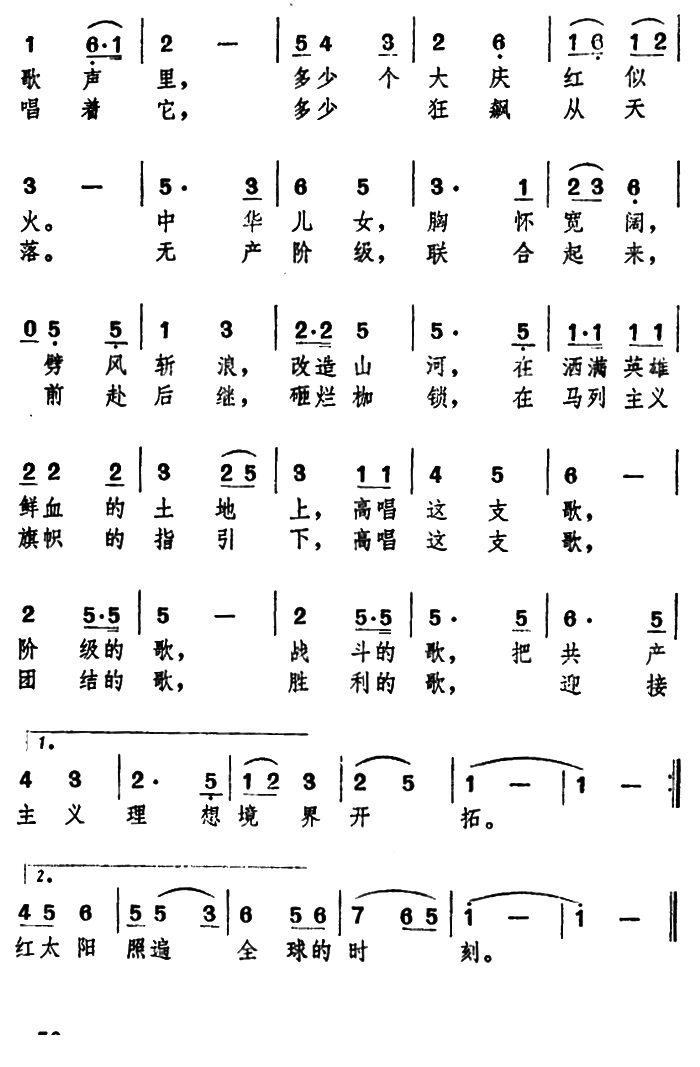 1 6·1 | 2 — | 5 4 3 | 2 6 | 1 6 1 2 |
歌声里，多少个大庆红似
唱着它，多少狂飙从天
3 — | 5· 3 | 6 5 | 3· 1 | 2 3 6 |
火。中华儿女，胸怀宽阔，
落。无产阶级，联合起来，
0 5 5 | 1 3 | 2·2 5 | 5· 5 | 1·1 1 1 |
劈风斩浪，改造山河，在洒满英雄
前赴后继，砸烂枷锁，在马列主义
2 2 2 | 3 2 5 | 3 1 1 | 4 5 | 6 — |
鲜血的土地上，高唱这支歌，
旗帜的指引下，高唱这支歌，
2 5·5 | 5 — | 2 5·5 | 5· 5 | 6· 5 |
阶级的歌，战斗的歌，把共产
团结的歌，胜利的歌，迎接
1。
4 3 | 2· 5 | 1 2 3 | 2 5 | 1 — | 1 — :‖
主义理想境界开拓。
2。
4 5 6 | 5 5 3 | 6 5 6 | 7 6 5 | 1 — | 1 — ‖
红太阳照遍全球的时刻。